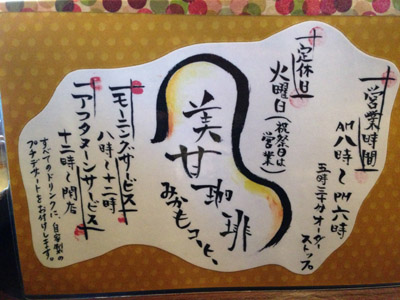 営業時間
AM八時〜PM六時
五時三十分オーダーストップ
定休日
火曜日(祝祭日は営業)
美甘珈琲
みかもコーヒー
モーニングサービス
八時〜十一時
アフタヌーンサービス
十二時〜閉店
すべてのドリンクに、自家製の
プチデザートをお付けします。